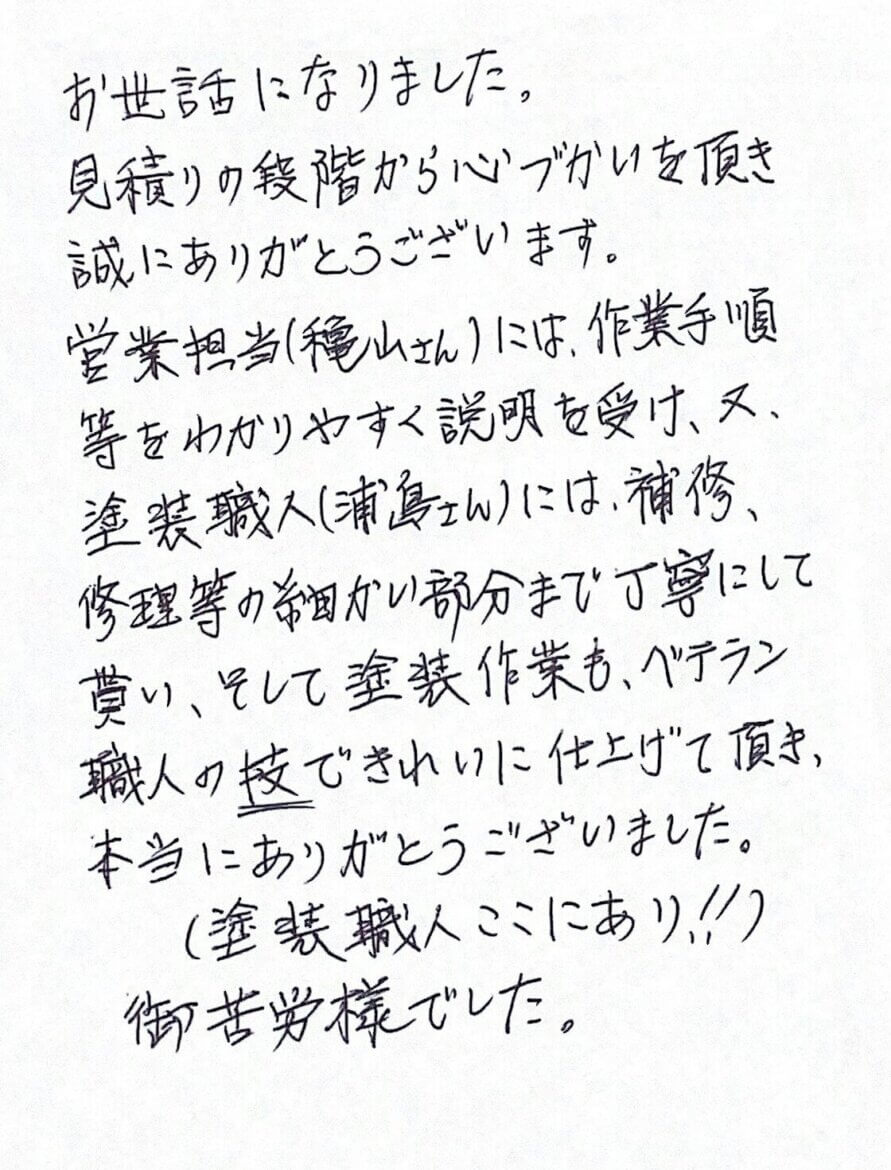 お世話になりました。
見積りの段階から心づかいを頂き
誠にありがとうございます。
営業担当(穐山さん)には、作業手順
等をわかりやすく説明を受け、又、
塗装職人(浦島さん)には、補修、
修理等の細かい部分まで丁寧にして
貰い、そして塗装作業も、ベテラン
職人の技できれいに仕上げて頂き、
本当にありがとうございました。
(塗装職人ここにあり!!)
御苦労様でした。